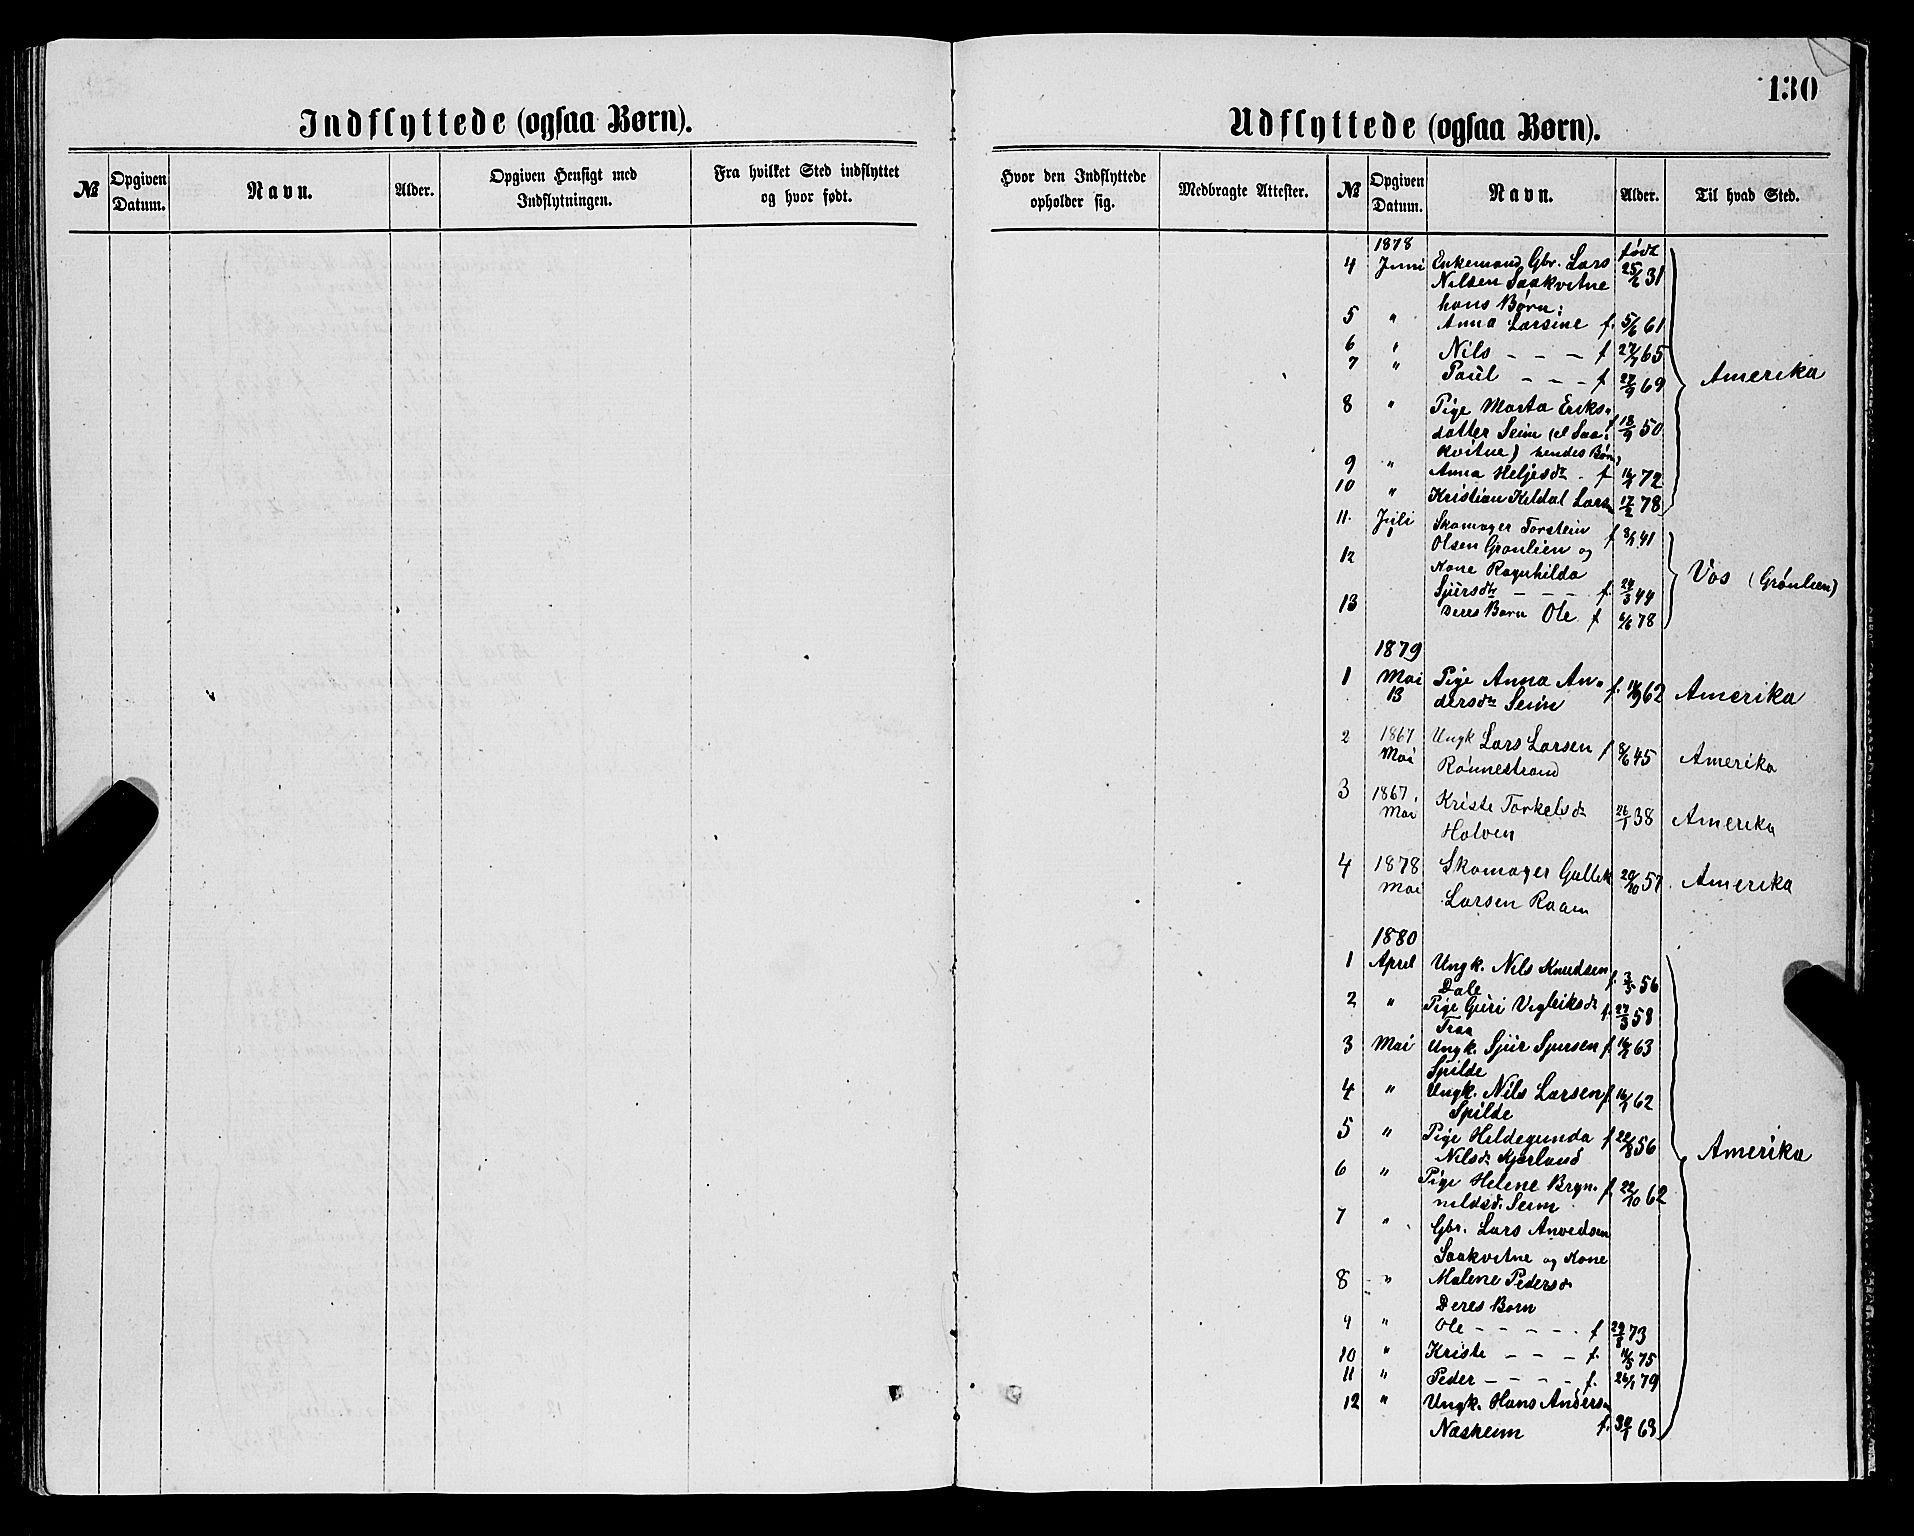 Indflyttede (ogsaa Børn).
№ Opgiven Datum. Navn. Alder. Opgiven Hensigt med Indflytningen. Fra hvilket Sted indflyttet og hvor født.
130
Udflyttede (ogsaa Børn).
Hvor den Indflyttede opholder sig. Medbragte Attester. № Opgiven Datum. Navn. Alder. Til hvad Sted.
1878 født
4 Juni Enkemand Gbr. Lars 25/6 31
Nilsen Saakvitne
hans Børn:
5 " Anna Larsine f. 5/6 61
6 " Nils — — — f 27/7 65
7 " Paul — — — f 27/9 69
Amerika
8 " Pige Marta Eriks-
datter Seim (el Saa- f 18/9 50
kvitne) hendes Børn
9 " Anna Heljesdr. f 72
10 " Kristian Keldal Larsen 17/2 78
11. Juli Skomager Torstein f 41
Olsen Grønlien og
12 Kone Ragnhilda
Sjursdtr — — — f. 24/3 44
Vos (Grønlien)
13 Deres Barn Ole f 6/6 78
1879
1 Mai Pige Anna An-
13 dersdtr Seim f. 62 Amerika
2 1867 Ungk Lars Larsen f 8/6 45 Amerika
Mai Rønnestrand
3 1867. Kriste Torkelsdr 26/1 38 Amerika
Mai Halven
4 1878 Skomager Gullek 20/10 57. Amerika
Mai Larsen Raaen
1880
1 April Ungk. Nils Knudsen
Dale f. 56
2 " Pige Guri Vigleiksdr f. 27/3 58
Traa
3 Mai Ungk. Sjur Sjursen f. 63
Spilde
4 " Ungk. Nils Larsen f 62
Spilde
5 " Pige Hildegunda f 22/8 56
Nilsdr. Kjerland
Amerika
6 " Pige Helene Bryn- f. 22/10 62
nildsdr. Seim
7 " Gbr. Lars Anvedsen
Saakvitne og Kone
8 " Malene Pedersdr
Deres Børn
9 " Ole — — — — f 29/8 73
10 " Kriste — — — f. 75
11 " Peder — — — — f. 26/1 79
12 " Ungk. Hans Andersen
Næsheim f. 30/1 63